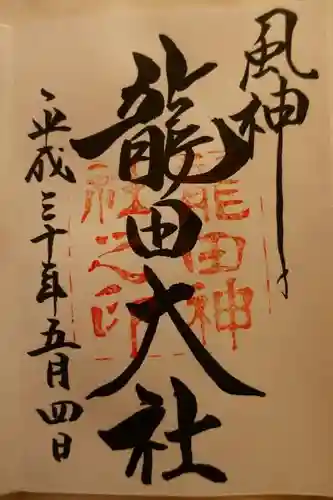 風神
龍田大社
平成三十年五月四日
龍田神
社之印